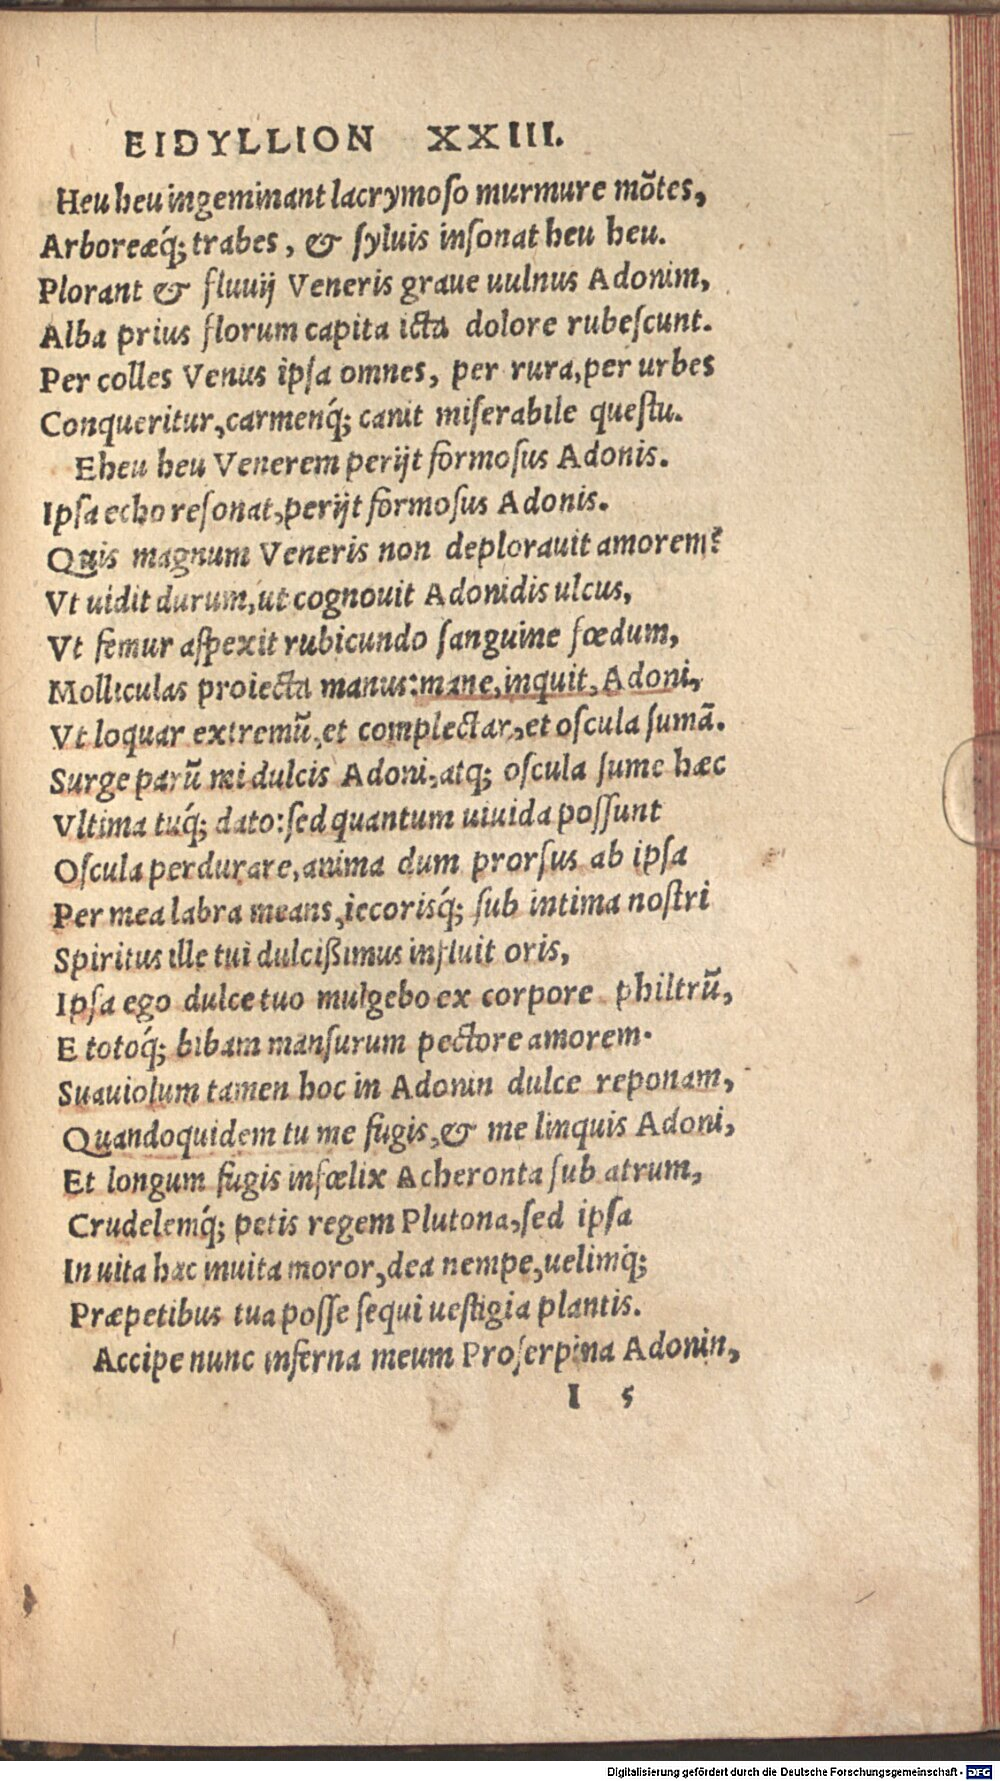 EIDYLLION XXIII.
Heu heu ingeminant lacrymoso murmure mõtes,
Arboreæq́; trabes, & syluis insonat heu heu.
Plorant & fluuij Veneris graue uulnus Adonim,
Alba prius florum capita icta dolore rubescunt.
Per colles Venus ipsa omnes, per rura, per urbes
Conqueritur, carmenq́; canit miserabile questu.
Eheu heu Venerem perijt formosus Adonis.
Ipsa echo resonat, perijt formosus Adonis.
Quis magnum Veneris non deplorauit amorem?
Vt uidit durum, ut cognouit Adonidis ulcus,
Vt femur aspexit rubicundo sanguine fœdum,
Molliculas proiecta manus: mane, inquit, Adoni,
Vt loquar extremũ, et complectar, et oscula sumã.
Surge parũ mi dulcis Adoni, atq; oscula sume hæc
Vltima tuq́; dato: sed quantum uiuida possunt
Oscula perdurare, anima dum prorsus ab ipsa
Per mea labra means, iecorisq́; sub intima nostri
Spiritus ille tui dulcißimus influit oris,
Ipsa ego dulce tuo mulgebo ex corpore philtrũ,
E totoq́; bibam mansurum pectore amorem.
Suauiolum tamen hoc in Adonin dulce reponam,
Quandoquidem tu me fugis, & me linquis Adoni,
Et longum fugis infœlix Acheronta sub atrum,
Crudelemq́; petis regem Plutona, sed ipsa
In uita hac inuita moror, dea nempe, uelimq́;
Præpetibus tua posse sequi uestigia plantis.
Accipe nunc inferna meum Proserpina Adonin,
I 5
Digitalisierung gefördert durch die Deutsche Forschungsgemeinschaft - DFG